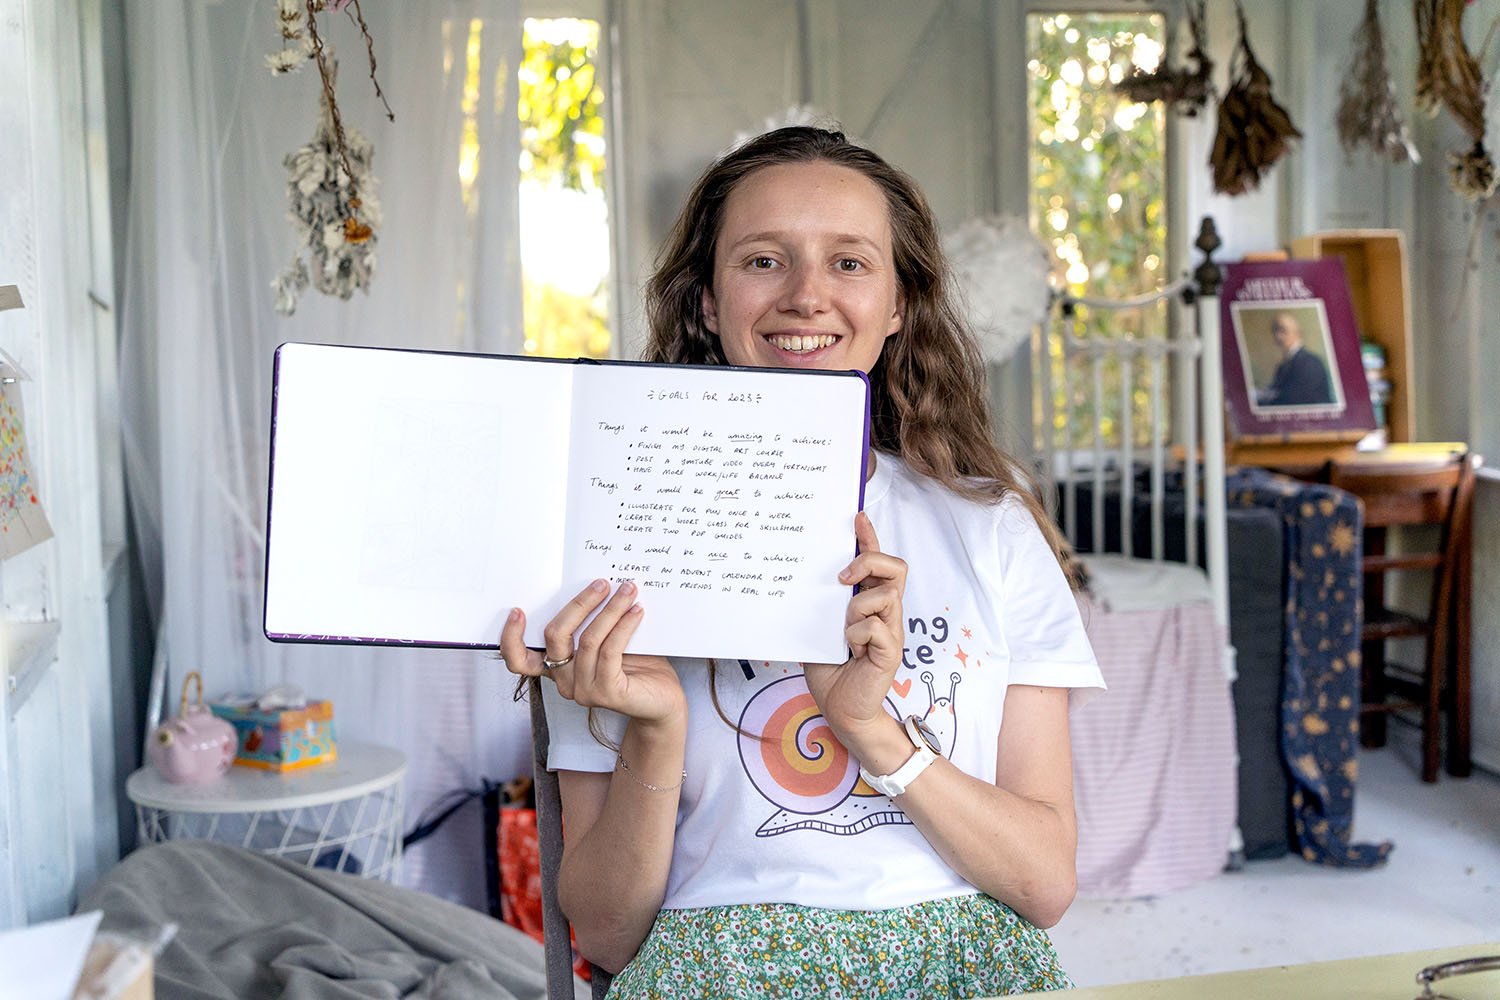 GOALS FOR 2023
Things it would be amazing to achieve:
• FINISH MY DIGITAL ART COURSE
• POST A YOUTUBE VIDEO EVERY FORTNIGHT
• HAVE MORE WORK/LIFE BALANCE
Things it would be great to achieve:
• ILLUSTRATE FOR FUN ONCE A WEEK
• CREATE A SHORT CLASS FOR SKILLSHARE
• CREATE TWO PDF GUIDES
Things it would be nice to achieve:
• CREATE AN ADVENT CALENDAR CARD
• MEET ARTIST FRIENDS IN REAL LIFE
ng
te